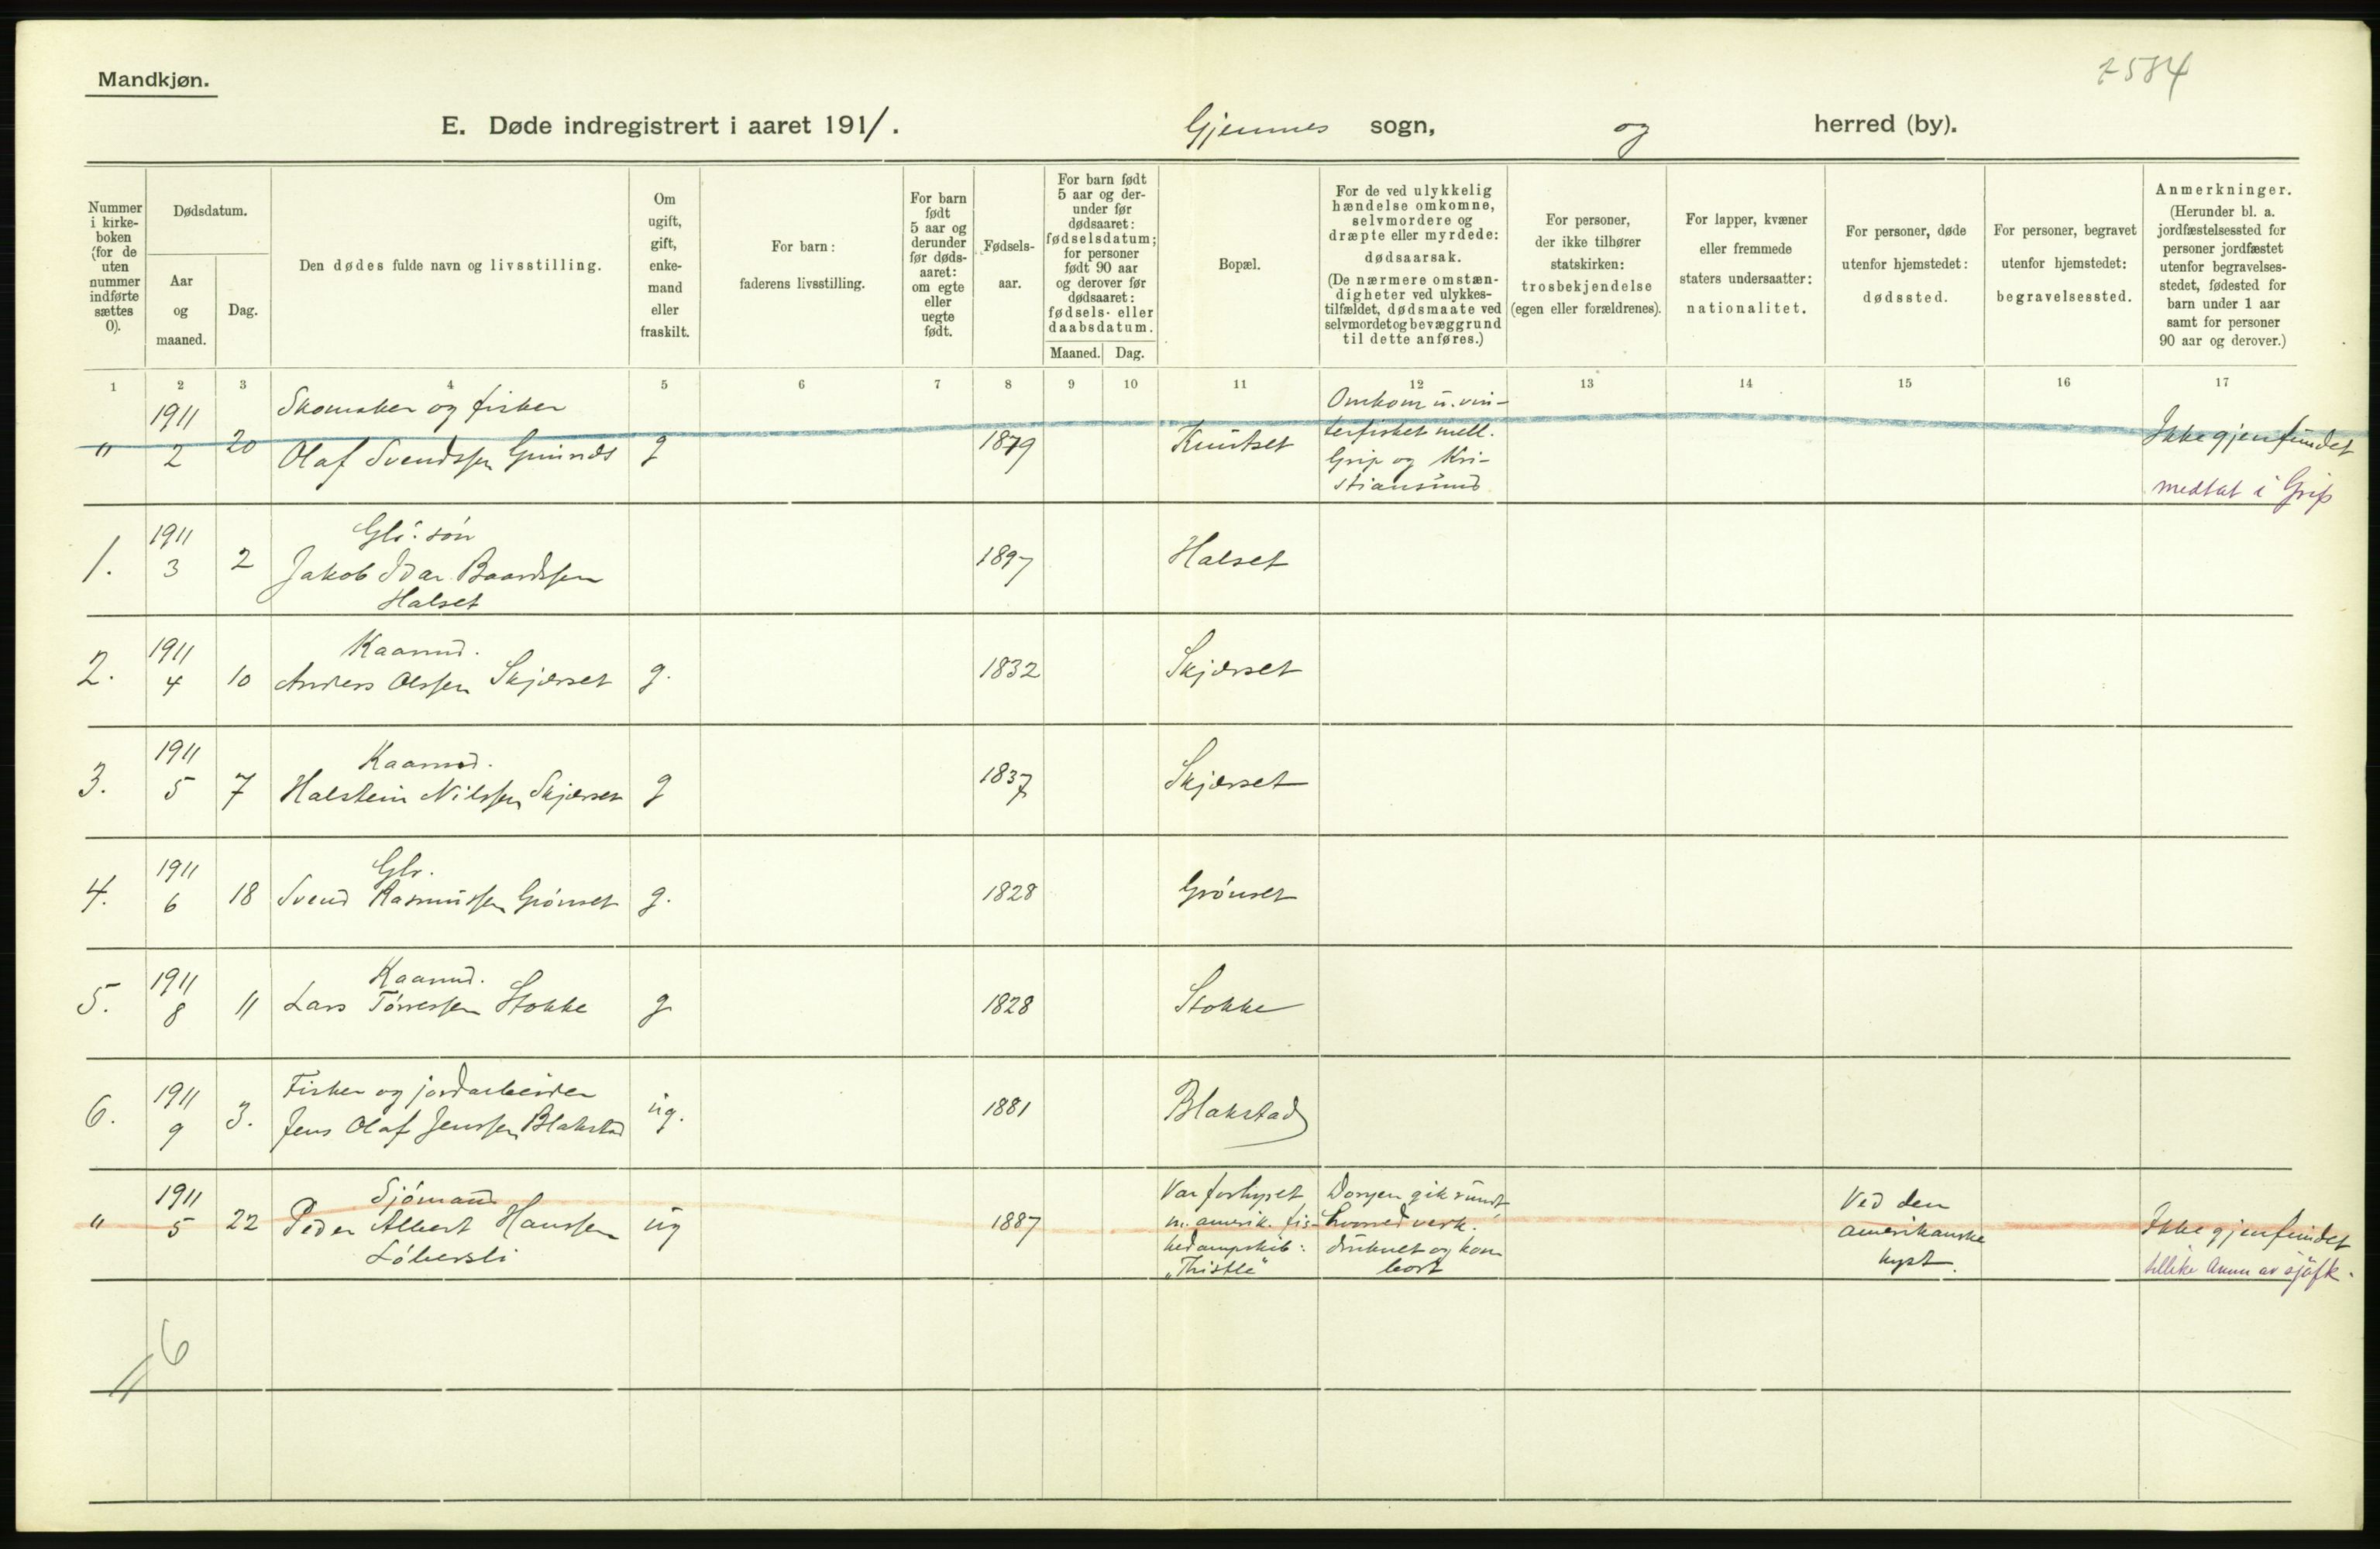 Mandkjøn.
7584
E. Døde indregistrert i aaret 1911. Gjemnes sogn, og herred (by).
Nummer i kirke-boken (for de uten nummer indførte sættes 0).
Dødsdatum.
Aar og maaned.
Dag.
Den dødes fulde navn og livsstilling.
Om ugift, gift, enke-mand eller fraskilt.
For barn: faderens livsstilling.
For barn født 5 aar og derunder før døds-aaret: om egte eller uegte født.
Fødsels-aar.
For barn født 5 aar og der-under før dødsaaret: fødselsdatum; for personer født 90 aar og derover før dødsaaret: fødsels- eller daabsdatum.
Maaned. Dag.
Bopæl.
For de ved ulykkelig hændelse omkomne, selvmordere og dræpte eller myrdede: dødsaarsak. (De nærmere omstæn-digheter ved ulykkes-tilfældet, dødsmaate ved selvmordet og bevæggrund til dette anføres.)
For personer, der ikke tilhører statskirken: trosbekjendelse (egen eller forældrenes).
For lapper, kvæner eller fremmede staters undersaatter: nationalitet.
For personer, døde utenfor hjemstedet: dødssted.
For personer, begravet utenfor hjemstedet: begravelsessted.
Anmerkninger. (Herunder bl. a. jordfæstelsessted for personer jordfæstet utenfor begravelses-stedet, fødested for barn under 1 aar samt for personer 90 aar og derover.)
1 2 3 4 5 6 7 8 9 10 11 12 13 14 15 16 17
1911 Skomaker og fisker Omkom u. vin-
" 2 20 Olaf Svendssen g 1879 Knutset terfisket mell. Ikke gjenfundet
Grip og Kri-
stiansund medtat i Grip
1911 Gbr. søn
1. 3 2 Jakob Idar Baardssen 1897 Halset
Halset
1911 Kaarmd.
2. 4 10 Anders Olssen Skjærset g. 1832 Skjærset
1911 Kaarmd.
3. 5 7 Halstein Nilssen Skjærset g 1837 Skjærset
1911 Gbr.
4. 6 18 Svend Rasmussen Grönset g. 1828 Grönset
1911 Kaarmd.
5. 8 11 Lars Törressen Stokke g 1828 Stokke
1911 Fisker og jordarbeider
6. 9 3. Jens Olaf Jenssen Blakstad ug. 1881 Blakstad
1911 Sjömand Var forhyret Doryen gik rundt, Ved den
" 5 22 Peder Albert Hanssen ug 1887 m. amerik. fis- hvorved vedk. amerikanske Ikke gjenfundet
Löbersli kedampskib: druknet og kom kyst. tillike anm av sjöfk.
"Thistle" bort
6